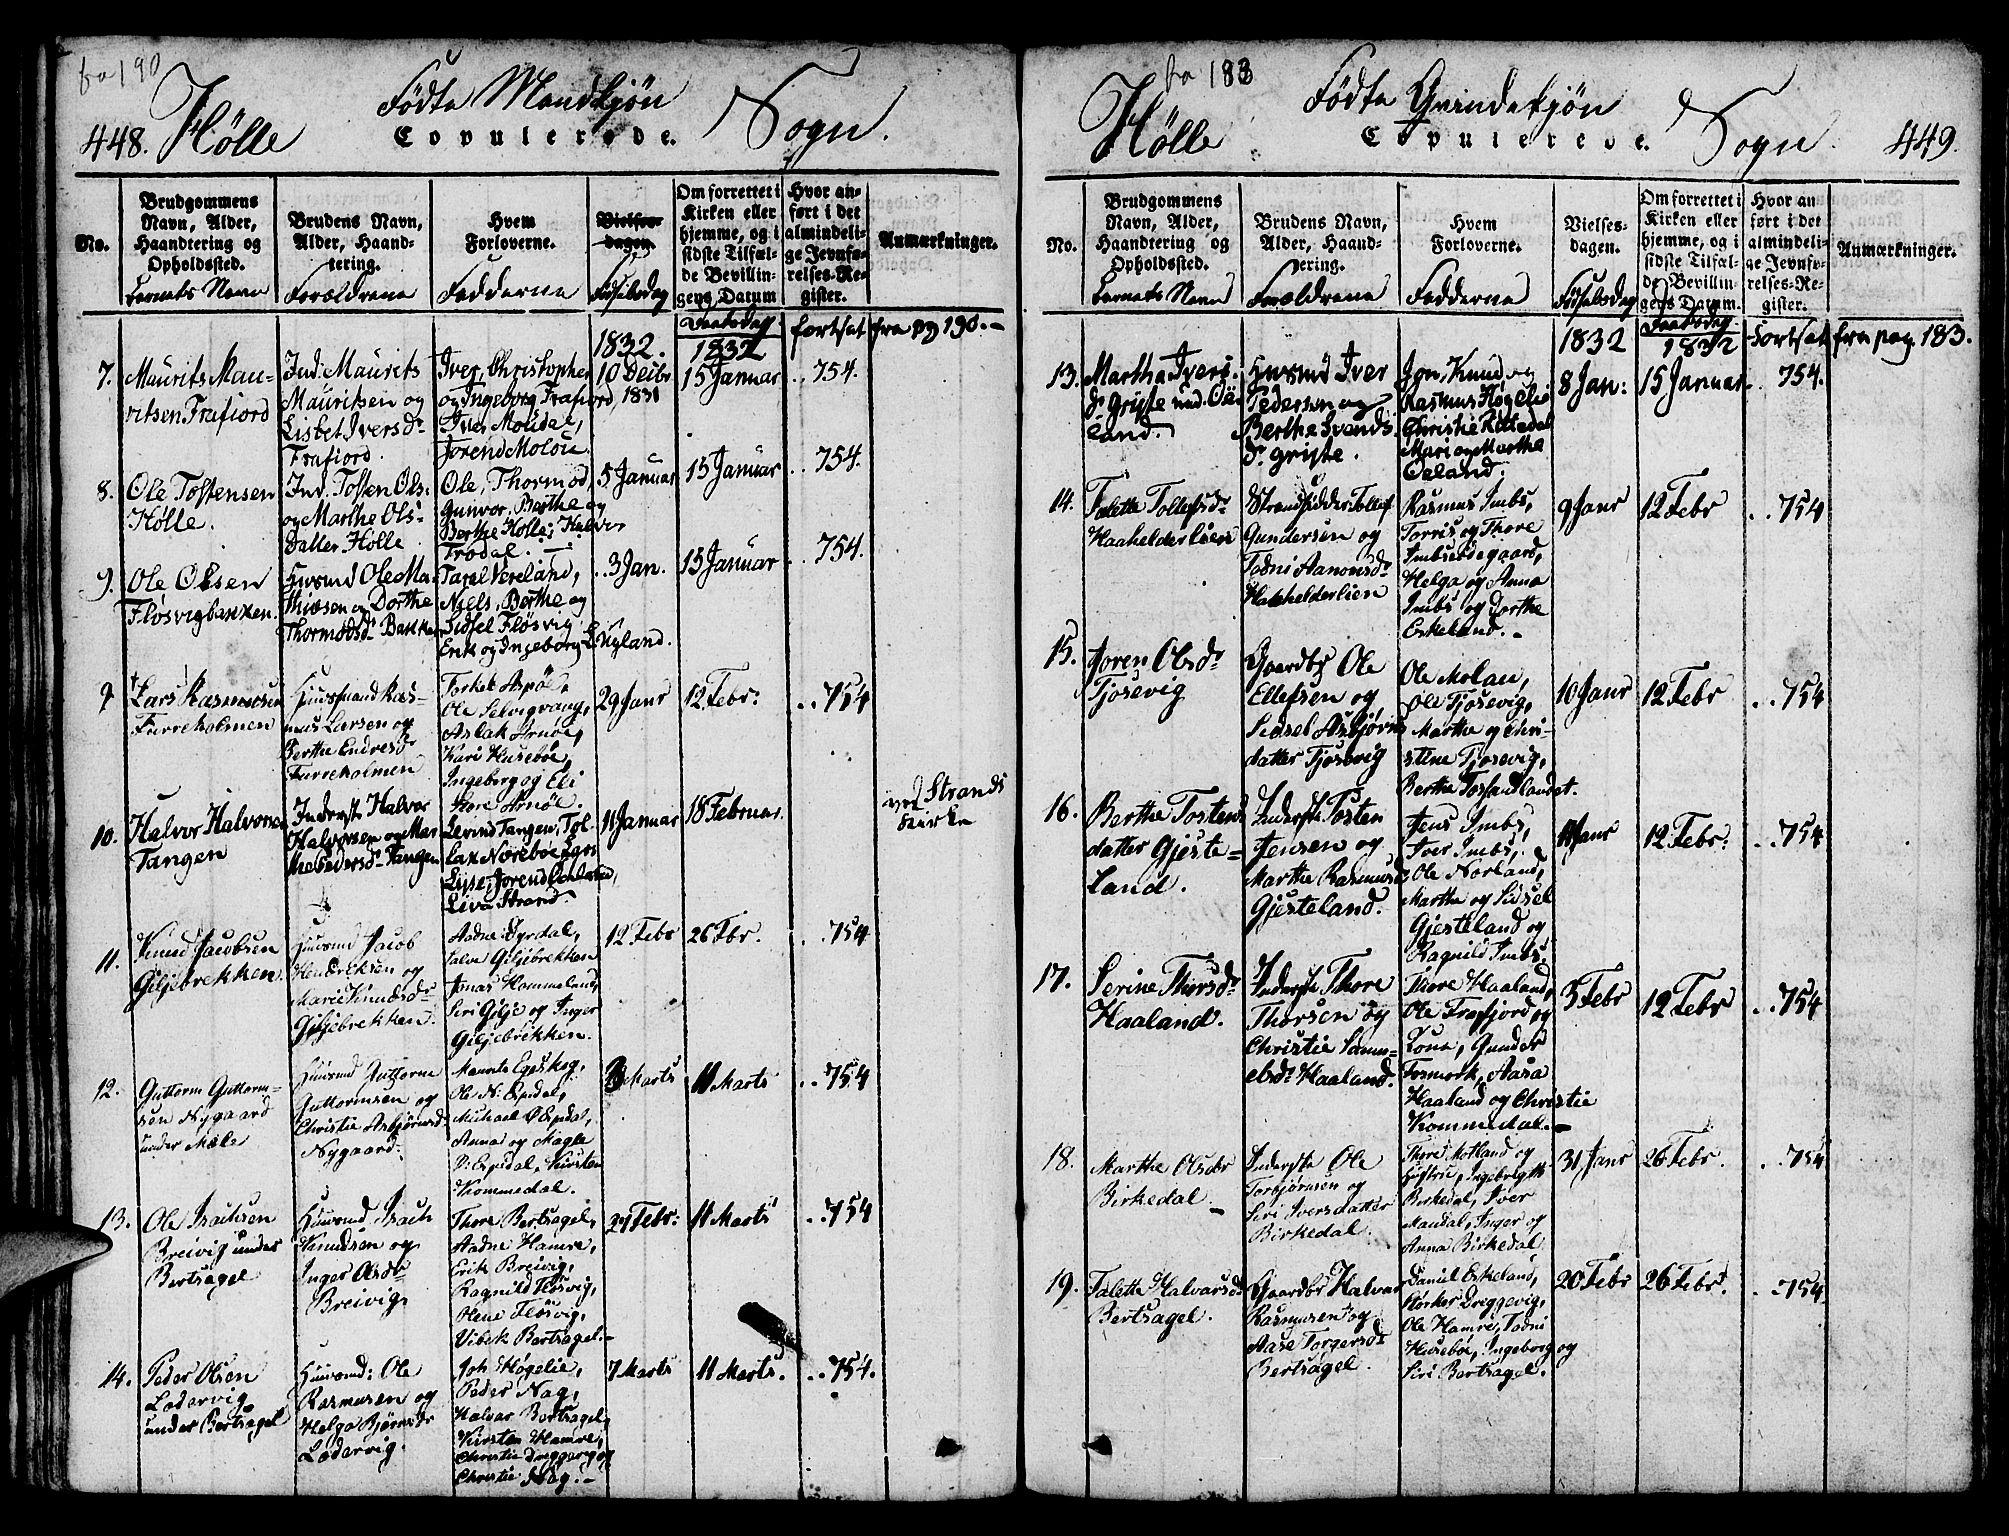 fra 190
448. Hølle
Fødte Mandkjøn
Copulerede.
Sogn.
No.
Brudgommens
Navn, Alder,
Haandtering og
Opholdssted.
Barnets Navn
Brudens Navn,
Alder, Haand-
tering.
Forældrene
Hvem
Forloverne.
Fadderne
Vielses-
dagen.
Fødselsdag
Om forrettet i
Kirken eller
hjemme, og i
sidste Tilfæl-
de Bevillin-
gens Datum
Daabsdag
Hvor an-
ført i det
almindeli-
ge Jevnfø-
relses-Re-
gister.
Anmærkninger.
fortsat fra pag 190.
1832.
1832
7.
Maurits Mau-
ritsen Frafiord
Ind. Maurits
Mauritsen og
Lisbet Iversdr
Frafiord.
Iver, Christopher
og Ingeborg Frafiord,
Iver Moudal,
Jorend Molou
10 Decbr
1831
15 Januar
.. 754.
8.
Ole Tostensen
Hølle.
Ind. Tosten Ols.
og Marthe Ols-
datter Hølle
Ole, Thormod,
Gunvor, Berthe og
Berthe Hølle; Halvor
Frodal.
5 Januar
15 Januar
.. 754.
9.
Ole Olsen
Fløsvigbakken.
Husmd Ole Ma-
thiesen og Dorthe
Thormodsdr Bakken
Tarel Vereland,
Niels, Berthe og
Sidsel Fløsvig
Erik og Ingeborg Løyland.
.. 3 Jan.
15 Januar
.. 754.
9
Lars Rasmusen
Furreholmen
Huusmand Ras-
mus Larsen og
Berthe Endresdr
Furreholmen
Torkel Aspøe,
Ole Selvigvaag,
Aslak Arnøe,
Kari Husebøe,
Ingeborg og Eli
Store Arnøe.
29 Janr
12 Febr.
.. 754
10.
Halvor Halvorsen
Tangen
Inderst Halvor
Halvorsen og Mar
the Pedersdr Tangen
Eevind Tangen, Tol-
lak Nørebøe, Lars
Lysse, Jorend
Liva Strand.
11 Januar
18 Februar.
ved Strands
Kirke
11.
Knud Jacobsen
Giljebrekken.
Huusmd Jacob
Hendriksen og
Marie Knudsdr
Giljebrekken.
Aadne Dyrdal,
Salve Giljebrekken
Jonas Hommeland,
Siri Gilje og Inger
Giljebrekken.
12 Febr
26 Fbr.
.. 754
12.
Guttorm Guttorm-
sen Nygaard
under Mæle
Huusmd Guttorm
Guttormsen og
Christie Asbjørnsdr
Nygaard.
Maurits Egeskog,
Ole N. Espdal,
Michael Ø Espdal,
Anna og Magle
D: Espdal, Kirsten
Kommedal.
3 Marts
11 Marts
.. 754
13.
Ole Isachsen
Breivig under
Bertsagel
Huusmd Isach
Knudsen og
Inger Olsdr
Breivig
Thore Bertsagel,
Aadne Hamre,
Erik Breivig,
Ragnild Fløsvig,
Olene Fløsvig,
Vibek Bertsagel.
27 Febr.
11 Marts
.. 754
14.
Peder Olsen
Lodervig
under Bertsagel
Huusmd: Ole
Rasmusen og
Helga Bjørnsdr
Lodervig.
Joh Høgelie,
Peder Nag,
Halvor Bertsagel,
Kirsten Hamre,
Christie Dreggevig og
Christie Nag.
7 Marts
11 Marts.
.. 754.
fra 183
Hølle
Fødte Qvindekjøn
Copulerede.
Sogn.
449.
No.
Brudgommens
Navn, Alder,
Haandtering og
Opholdssted.
Barnets Navn
Brudens Navn,
Alder, Haand-
tering.
Forældrene
Hvem
Forloverne.
Fadderne
Vielses-
dagen.
Fødselsdag
Om forrettet i
Kirken eller
hjemme, og i
sidste Tilfæl-
de Bevillin-
gens Datum.
Daabsdag
Hvor an-
ført i det
almindeli-
ge Jevnfø-
relses-Re-
gister.
Anmærkninger.
1832
1832
Fortsat fra pag. 183.
13.
Martha Ivers-
dr Gryte und. Øe-
land.
Husmd Iver
Pedersen og
Berthe Svends
dr Gryte.
Jon, Knud og
Rasmus Høgelie
Christie Rettedal
Mari og Marthe
Øeland.
8 Jan:
15 Januar
. 754.
14.
Talette Tollefsdr
Haahelderlien
Strandsidder Tollef
Gundersen og
Todni Aanonsdr
Haahelderlien
Rasmus Imbs,
Torris og Thore
Imbsødegaard,
Helga og Anna
Imbs og Dorthe
Eskeland.
9 Janr
12 Febr
.. 754
15.
Joren Olsdr
Tjosevig
Gaardbr Ole
Ellefsen og
Sidsel Asbjørns
datter Tjosevig
Ole Molau,
Ole Tjosevig,
Marthe og Chri-
stine Tjosevig,
Berthe Fossandlandet.
10 Janr
12 Febr
.. 754
16.
Berthe Tostens
datter Gjeste-
land.
Inderste Tosten
Jensen og
Marthe Rasmusdr
Gjesteland.
Jens Imbs,
Iver Imbs,
Ole Norland,
Marthe og Sidsel
Gjesteland og
Ragnild Imbs.
11 Janr
12 Febr.
.. 754
17.
Serine Thorsdr
Haaland.
Inderste Thore
Thorsen og
Christie Samu-
elsdr Haaland.
Thore Haaland,
Ole Frafjord og
Zona, Gunder
Fosmork, Aasa
Haaland og Christie
Kommedal.
5 Febr
12 Febr
.. 754
18.
Marthe Olsdr
Birkedal
Inderste Ole
Torbjørnsen og
Siri Iversdatter
Birkedal.
Thore Motland og
Hustru, Ingebrigth
Birkedal, Iver
Maudal, Inger og
Anna Birkedal
31 Janr
26 Febr.
.. 754
19.
Talette Halvorsdr
Bertsagel.
Gaardbr Halvor
Rasmusen og
Aase Torgersdr
Bertsagel.
Daniel Eskeland,
Størker Dreggevig,
Ole Hamre, Todni
Husebøe, Ingeborg og
Siri Bertsagel.
20 Febr
26 Febr.
.. 754